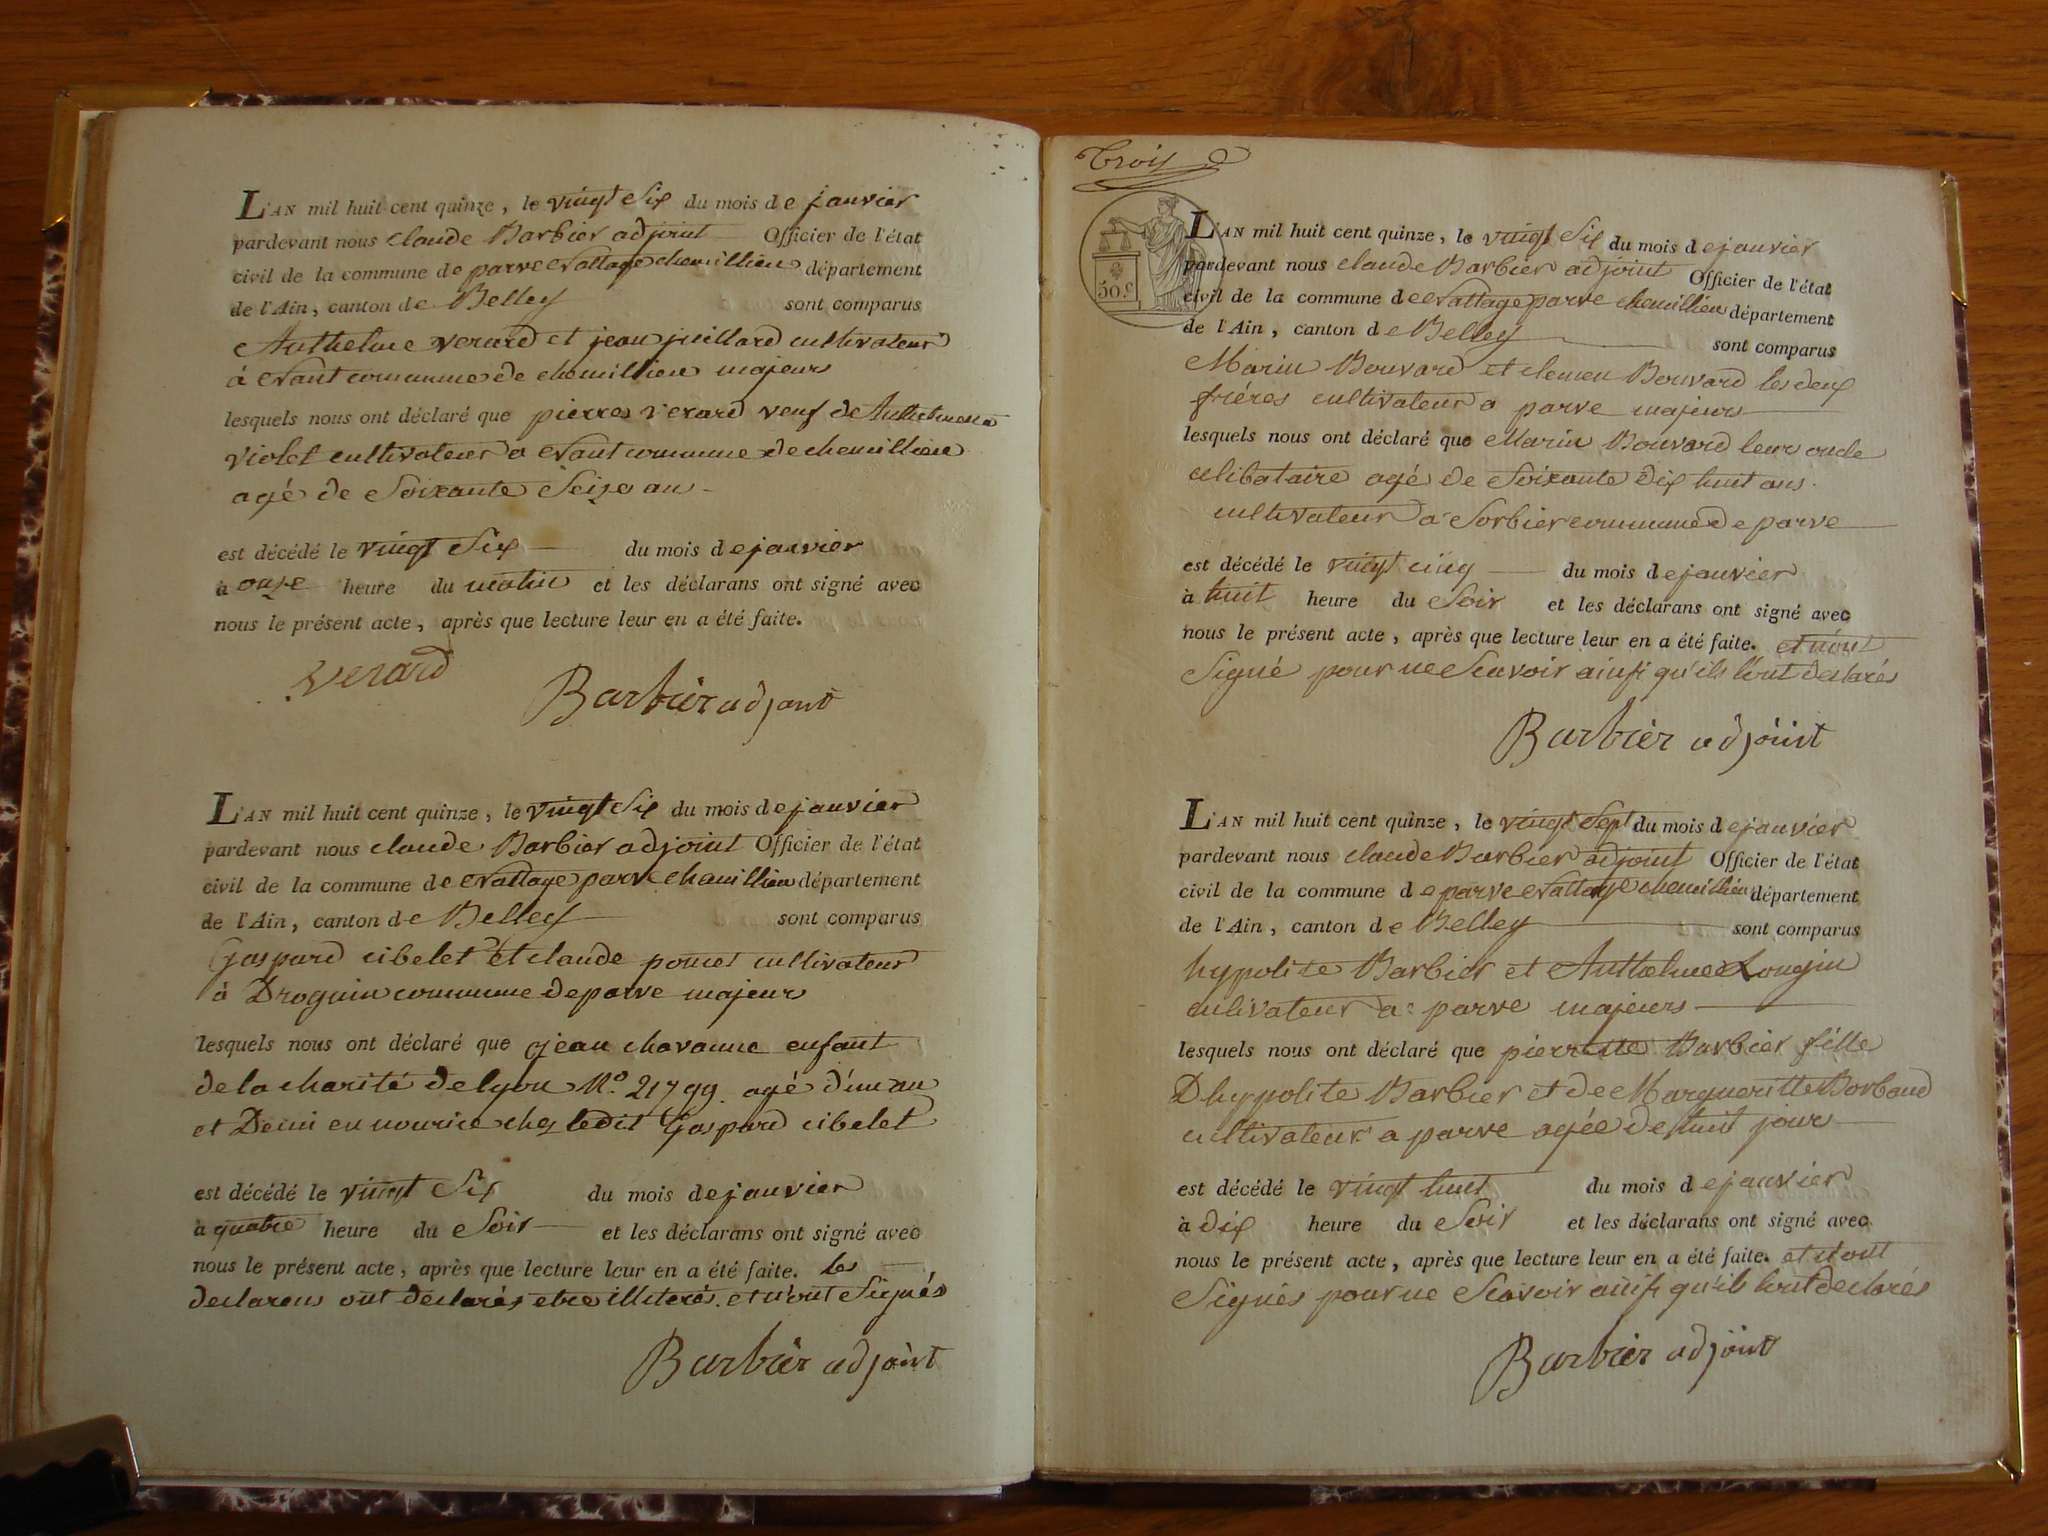 L'AN mil huit cent quinze, le vingt six du mois de janvier
pardevant nous claude Barbier adjoint Officier de l'état
civil de la commune de parve nattage chemillieu département
de l'Ain, canton de Belley sont comparus
Anthelme verard et jean juillard cultivateur
à nant commune de chemillieu majeurs
lesquels nous ont déclaré que pierre verard veuf de
violet cultivateur a nant commune de chemillieu
agé de soixante seize ans
est décédé le vingt six du mois de janvier
à onze heure du matin et les déclarans ont signé avec
nous le présent acte, après que lecture leur en a été faite.
verard
Barbier adjoint
L'AN mil huit cent quinze, le vingt six du mois de janvier
pardevant nous claude Barbier adjoint Officier de l'état
civil de la commune de nattage parve chemillieu département
de l'Ain, canton de Belley sont comparus
Gaspard cibelet et claude poncet cultivateur
à Droguin commune de parve majeurs
lesquels nous ont déclaré que jean chavanne enfant
de la charité de lyon No. 21799. agé d'un an
et Demi en nourice chez ledit Gaspard cibelet
est décédé le vingt six du mois de janvier
à quatre heure du soir et les déclarans ont signé avec
nous le présent acte, après que lecture leur en a été faite. les
declarans ont declarés etre illiterés. et n'ont signés
Barbier adjoint
Trois
50 c
L'AN mil huit cent quinze, le vingt six du mois de janvier
pardevant nous claude Barbier adjoint Officier de l'état
civil de la commune de nattage parve chemillieu département
de l'Ain, canton de Belley sont comparus
Marin Bouvard et clemen Bouvard les deux
fréres cultivateur a parve majeurs
lesquels nous ont déclaré que Marin Bouvard leur oncle
celibataire agé de soixante dix huit ans.
cultivateur a Sorbier commune de parve
est décédé le vingt cinq du mois de janvier
à huit heure du soir et les déclarans ont signé avec
nous le présent acte, après que lecture leur en a été faite. et n'ont
signé pour ne scavoir ainsi qu'ils l'ont declarés
Barbier adjoint
L'AN mil huit cent quinze, le vingt sept du mois de janvier
pardevant nous claude Barbier adjoint Officier de l'état
civil de la commune de parve nattage chemillieu département
de l'Ain, canton de Belley sont comparus
hypolite Barbier et Anthelme Longin
cultivateur a parve majeurs
lesquels nous ont déclaré que pierrette Barbier fille
D'hypolite Barbier et de Margueritte Borband
cultivateur a parve agée de huit jours
est décédé le vingt huit du mois de janvier
à dix heure du soir et les déclarans ont signé avec
nous le présent acte, après que lecture leur en a été faite. et n'ont
signés pour ne scavoir ainsi qu'ils l'ont declarés
Barbier adjoint